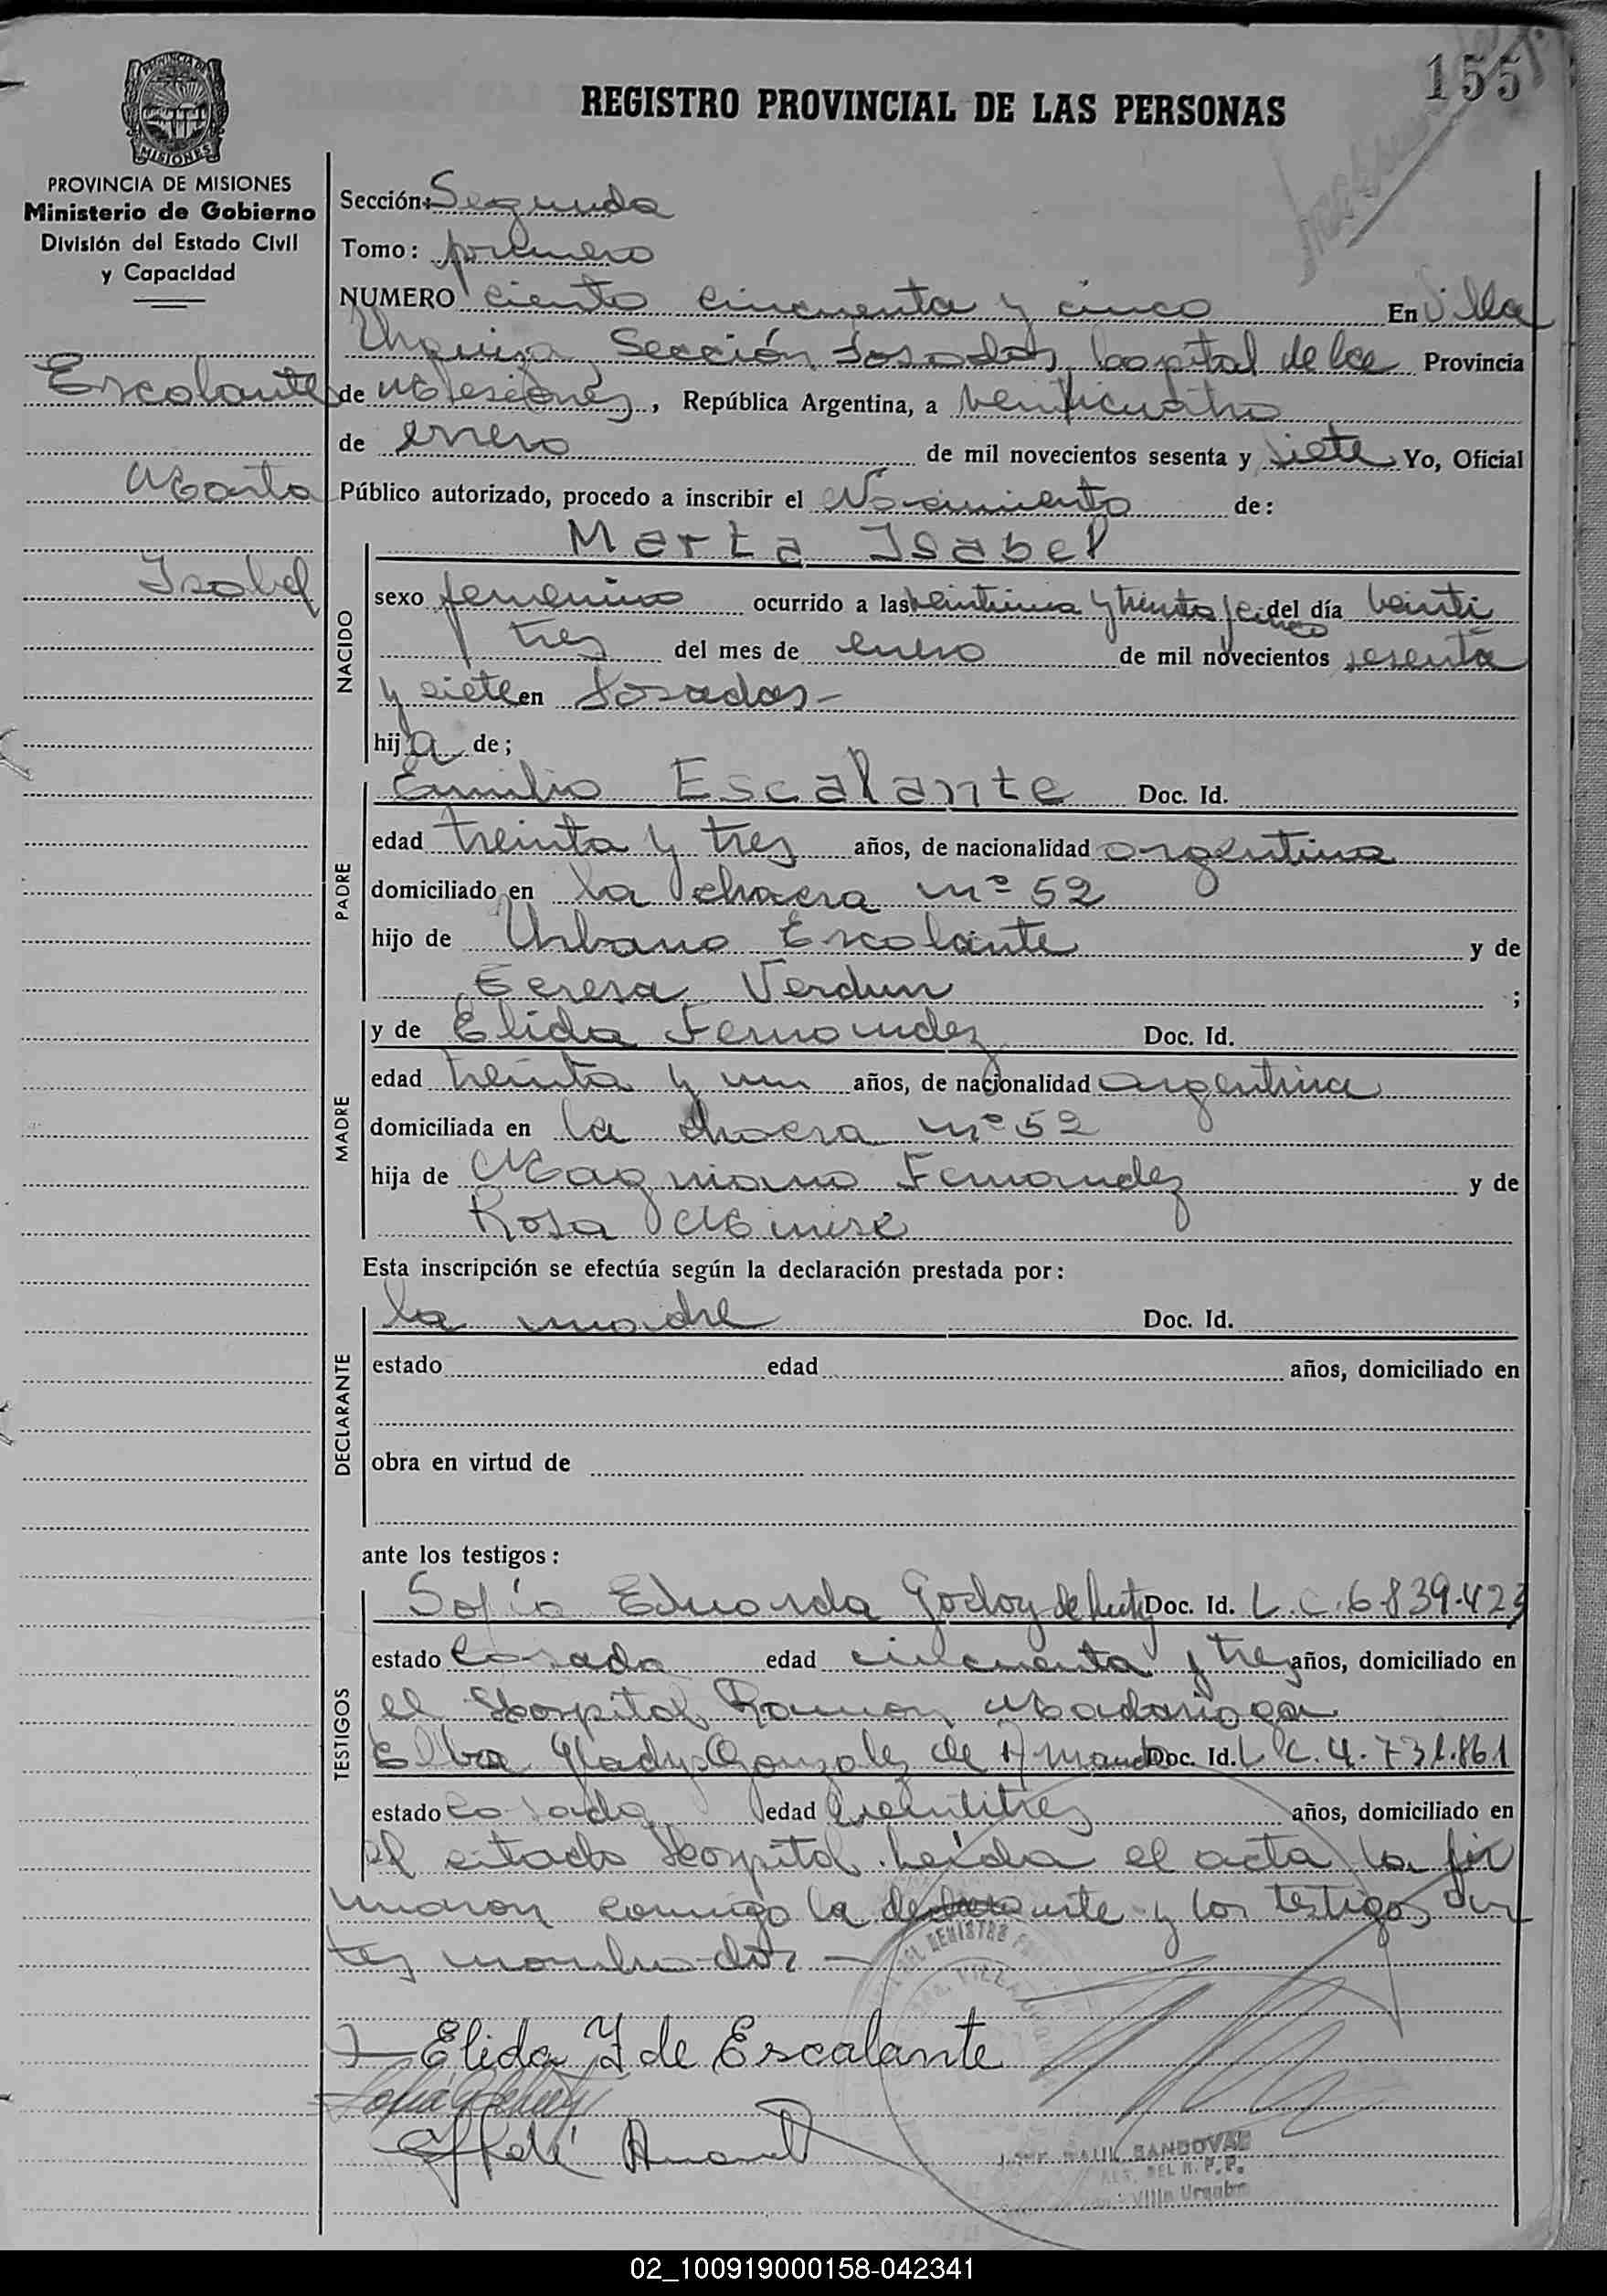 155
REGISTRO PROVINCIAL DE LAS PERSONAS
PROVINCIA DE
MISIONES
PROVINCIA DE MISIONES
Ministerio de Gobierno
División del Estado Civil
y Capacidad
Escalante
Marta
Isabel
Sección: Segunda
Tomo: primero
NUMERO ciento cincuenta y cinco En Villa
Urquiza Sección Posadas, capital de la Provincia
de Misiones, República Argentina, a veinticuatro
de enero de mil novecientos sesenta y siete Yo, Oficial
Público autorizado, procedo a inscribir el Nacimiento de:
Marta Isabel
NACIDO
sexo femenino ocurrido a las y treinta y cinco del día veinti
tres del mes de enero de mil novecientos sesenta
y siete en Posadas-
hija de;
PADRE
Emilio Escalante Doc. Id.
edad treinta y tres años, de nacionalidad argentina
domiciliado en la chacra nº 52
hijo de Urbano Escalante y de
Teresa Verdun ;
MADRE
y de Elida Fernandez Doc. Id.
edad treinta y un años, de nacionalidad argentina
domiciliada en la chacra nº 52
hija de Magniano Fernandez y de
Rosa
Esta inscripción se efectúa según la declaración prestada por:
DECLARANTE
la madre Doc. Id.
estado edad años, domiciliado en
obra en virtud de
ante los testigos:
TESTIGOS
Sofía Eduarda Godoy de Doc. Id. L.C. 6.839.423
estado casada edad cincuenta y tres años, domiciliado en
el Hospital Ramon Madariaga
Elba Gladys Gonzalez de Doc. Id. L.C. 4.731.861
estado casada edad veintitres años, domiciliado en
el citado Hospital. Leida el acta la fir
maron conmigo la declarante y los testigos an
tes nombrados —
Elida F de Escalante
RAUL SANDOVAL
DEL R. P. P.
Villa Urquiza
02_100919000158-042341